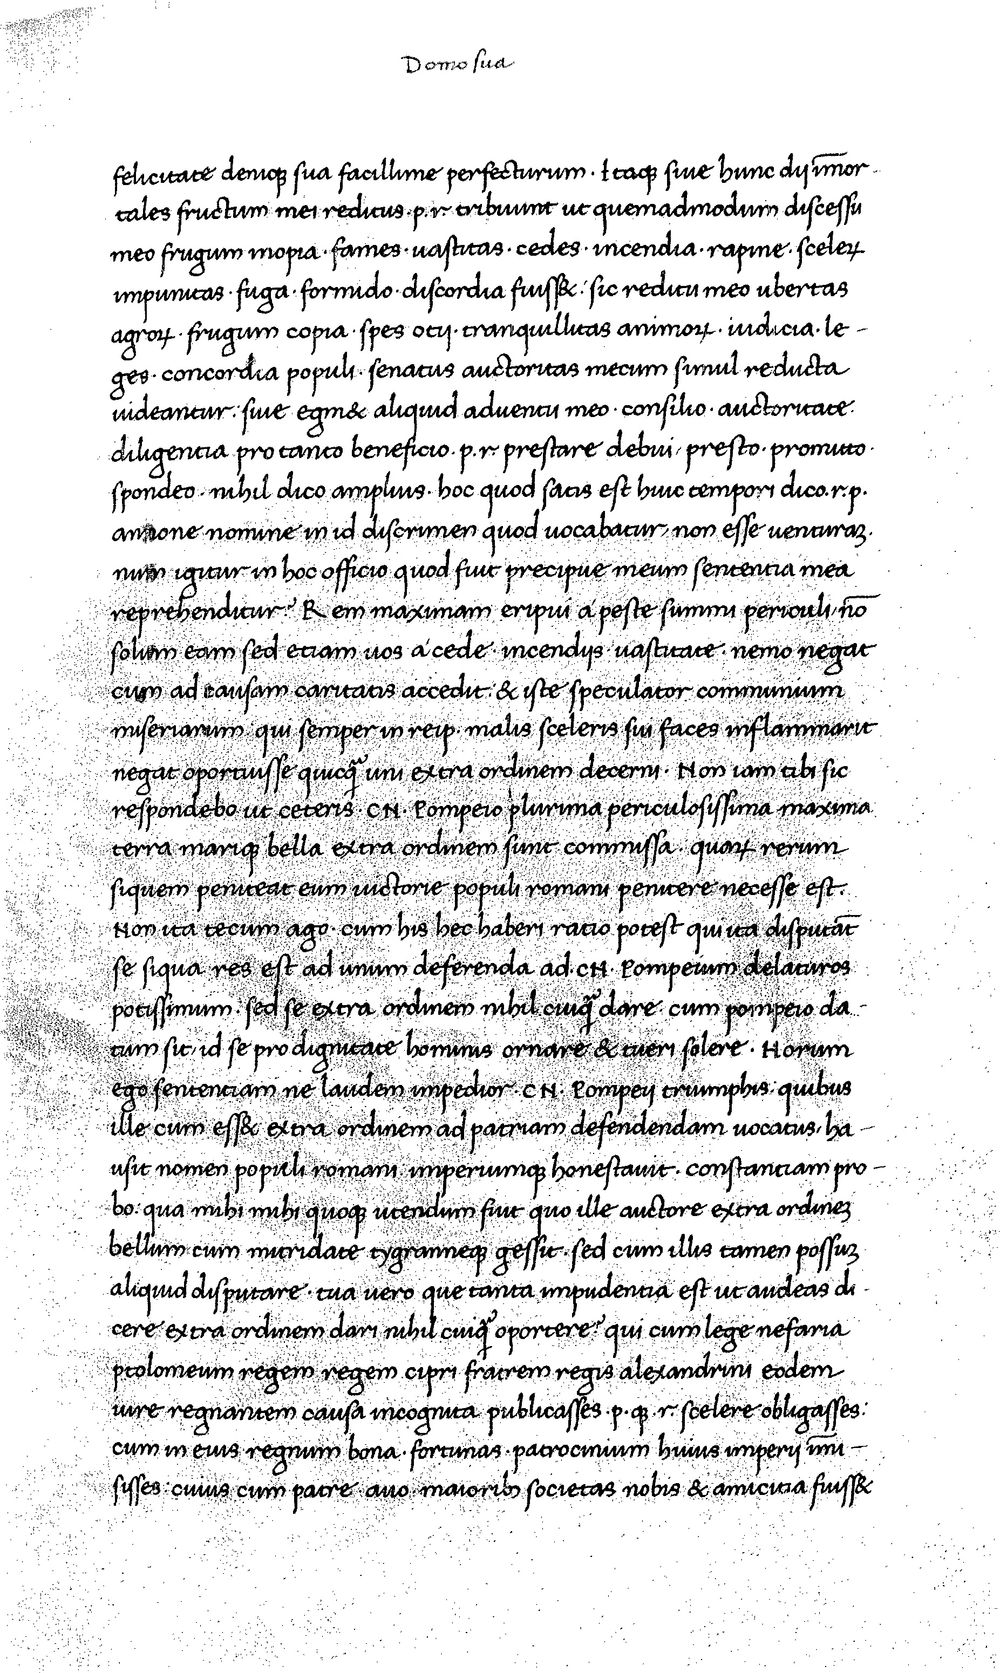 Domo sua
felicitate deniqꝫ sua facillime perfecturum · Itaqꝫ siue hunc dij īmor-
tales fructum mei reditus · p. r. tribuunt ut quemadmodum discessu
meo frugum inopia · fames · uastitas · cedes · incendia · rapine · scelerꝝ
impunitas · fuga · formido · discordia fuiss& : sic reditu meo ubertas
agroꝝ · frugum copia · spes otij · tranquillitas animoꝝ · iudicia · le-
ges · concordia populi · senatus auctoritas mecum simul reducta
uideantur : siue egm& aliquid aduentu meo · consilio · auctoritate ·
diligentia pro tanto beneficio · p. r. prestare debui, presto · promitto ·
spondeo · nihil dico amplius · hoc quod satis est huic tempori dico. r. p.
annone nomine in id discrimen quod uocabatur, non esse venturaꝫ.
num igitur in hoc officio quod fuit precipue meum sententia mea
reprehenditur? Rem maximam eripui a peste summi periculi, nō
solum eam sed etiam uos a cede · incendijs · uastitate · nemo negat
cum ad causam caritatis accedit & iste speculator communium
miseriarum · qui semper in reip. malis sceleris sui faces inflammarit
negat oportuisse quicꝙ̄ uni extra ordinem decerni · Non iam tibi sic
respondebo ut ceteris · CN · Pompeio plurima periculosissima maxima
terra mariqꝫ bella extra ordinem sunt commissa · quaꝝ rerum
siquem peniteat eum uictorie populi romani penitere necesse est.
Non ita tecum ago · cum his hec haberi ratio potest qui ita disputāt
se siqua res est ad unum deferenda ad CN. Pompeium delaturos
potissimum · sed se extra ordinem nihil cuiꝙ̄ dare · cum pompeio da-
tum sit, id se pro dignitate hominis ornare & tueri solere · Horum
ego sententiam ne laudem impedior · CN. Pompeij triumphis · quibus
ille cum ess& extra ordinem ad patriam defendendam uocatus, ha-
usit nomen populi romani imperiumqꝫ honestauit · constantiam pro-
bo : qua mihi mihi quoqꝫ utendum fuit quo ille auctore extra ordineꝫ
bellum cum mitridate tygranneqꝫ gessit · sed cum illis tamen possuꝫ
aliquid disputare · tua uero que tanta impudentia est ut audeas di-
cere extra ordinem dari nihil cuiꝙ̄ oportere? qui cum lege nefaria
ptolomeum regem regem cipri fratrem regis alexandrini eodem
iure regnantem causa incognita publicasses · p. qꝫ. r. scelere obligasses :
cum in eius regnum bona · fortunas · patrocinium huius imperij īmi-
sisses : cuius cum patre · auo · maioribꝫ societas nobis & amicitia fuiss&